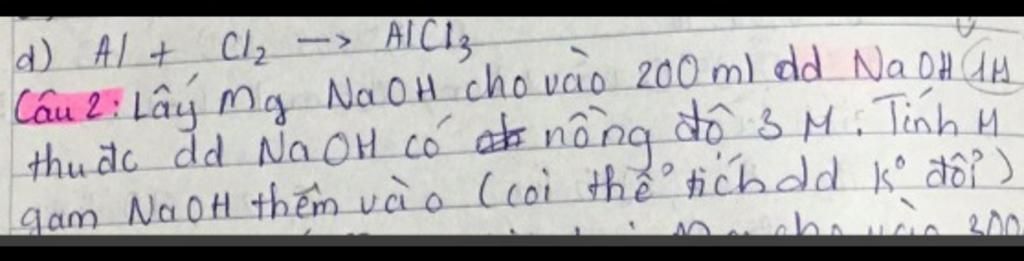 d) Al + Cl₂ → AlCl₃
Câu 2: Lấy mg NaOH cho vào 200 ml dd NaOH 1M
thu đc dd NaOH có nồng độ 3 M. Tính M
gam NaOH thêm vào (coi thể tích dd k° đổi)
300